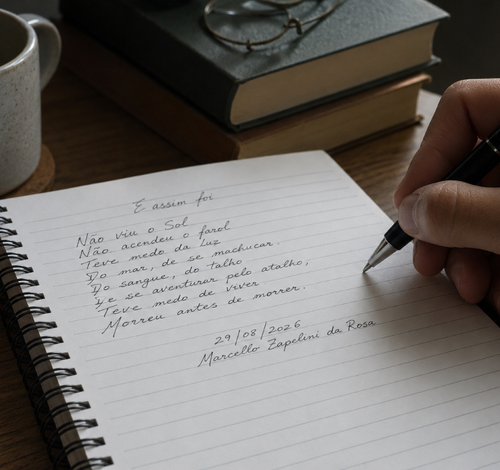 E assim foi
Não viu o Sol
Não acendeu o farol
Teve medo da luz
Do mar, de se machucar.
Do sangue, do talho
De se aventurar pelo atalho,
Teve medo de viver
Morreu antes de morrer.
29/08/2026
Marcello Zapelini da Rosa